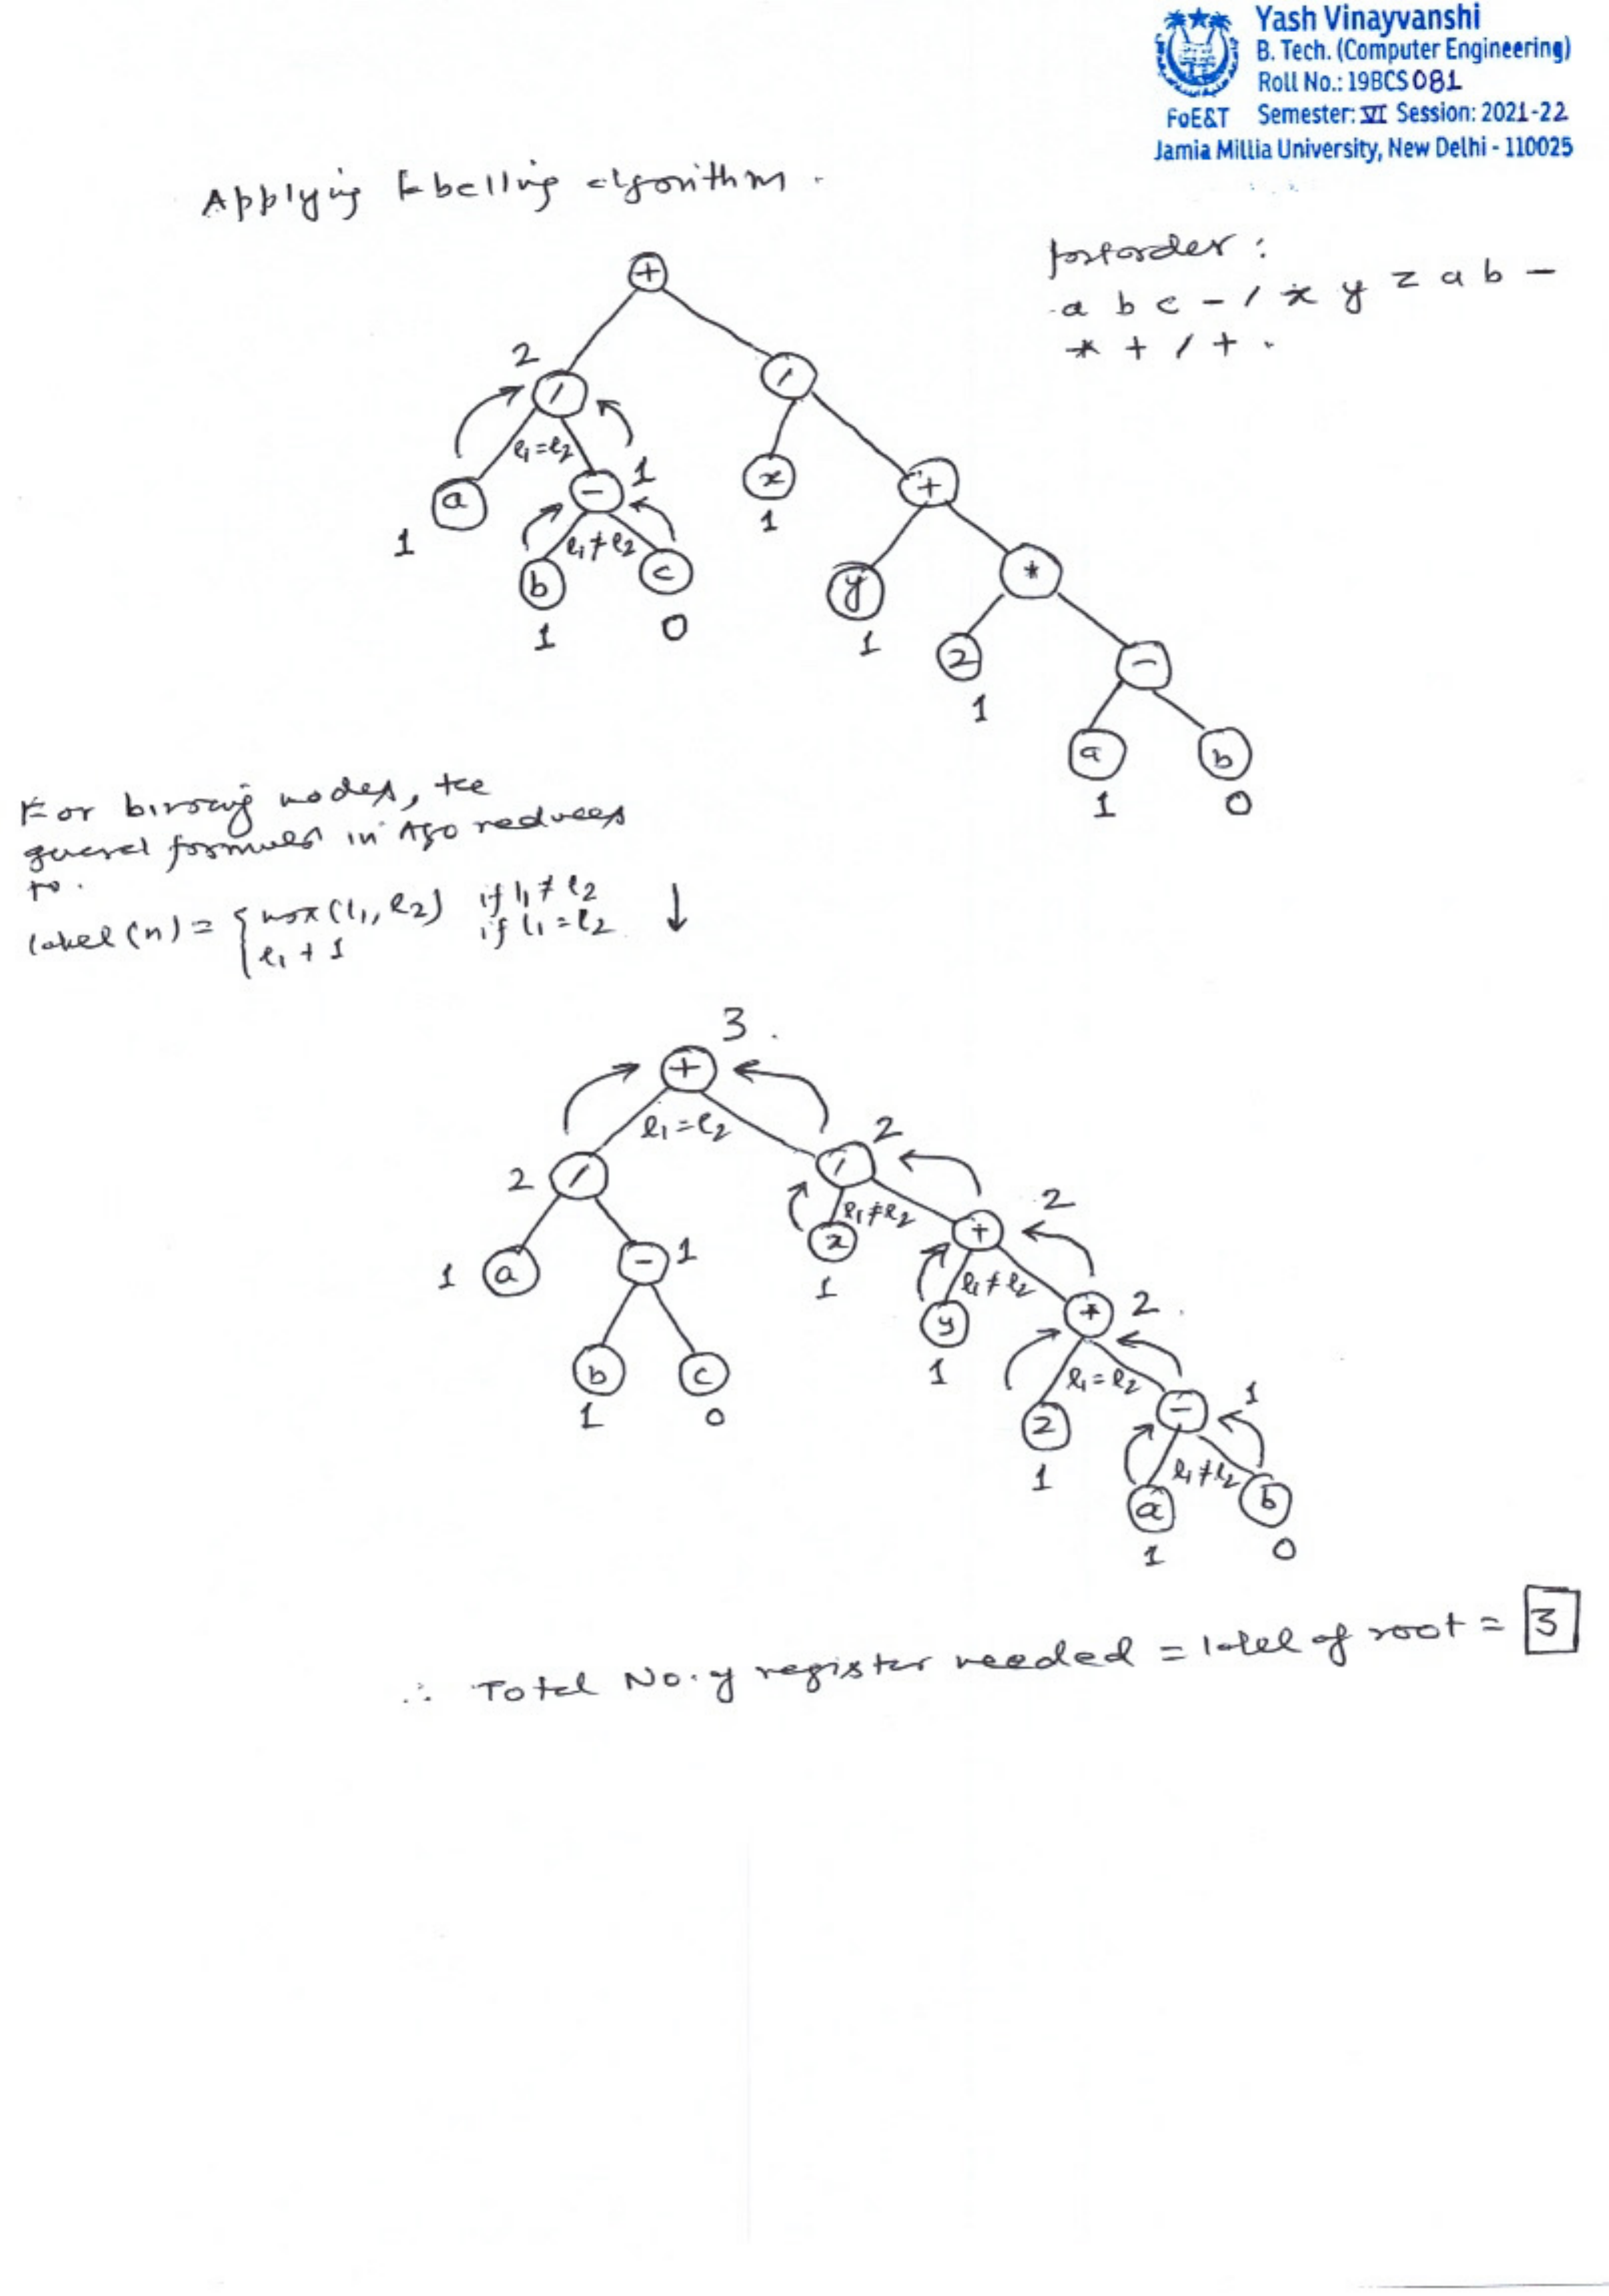 Yash Vinayvanshi
B. Tech. (Computer Engineering)
Roll No.: 19BCS081
FoE&T Semester: VI Session: 2021-22
Jamia Millia University, New Delhi - 110025
Applying labelling algorithm.
postorder:
a b c - / x y z a b -
* + / + .
+
2
/
/
l1=l2
1
a
-
x
+
1
l1≠l2
1
b
c
y
*
1
0
1
z
-
1
a
b
1
0
For binary nodes, the
general formula in Algo reduces
to.
label(n) = { max(l1, l2) if l1 ≠ l2 ↓
l1 + 1 if l1 = l2
3.
+
l1=l2
2
2
/
/
2
l1≠l2
+
1
a
-
1
x
1
l1≠l2
*
2.
y
b
c
1
l1=l2
1
1
0
z
-
1
l1≠l2
a
b
1
0
∴ Total No. of register needed = label of root = 3